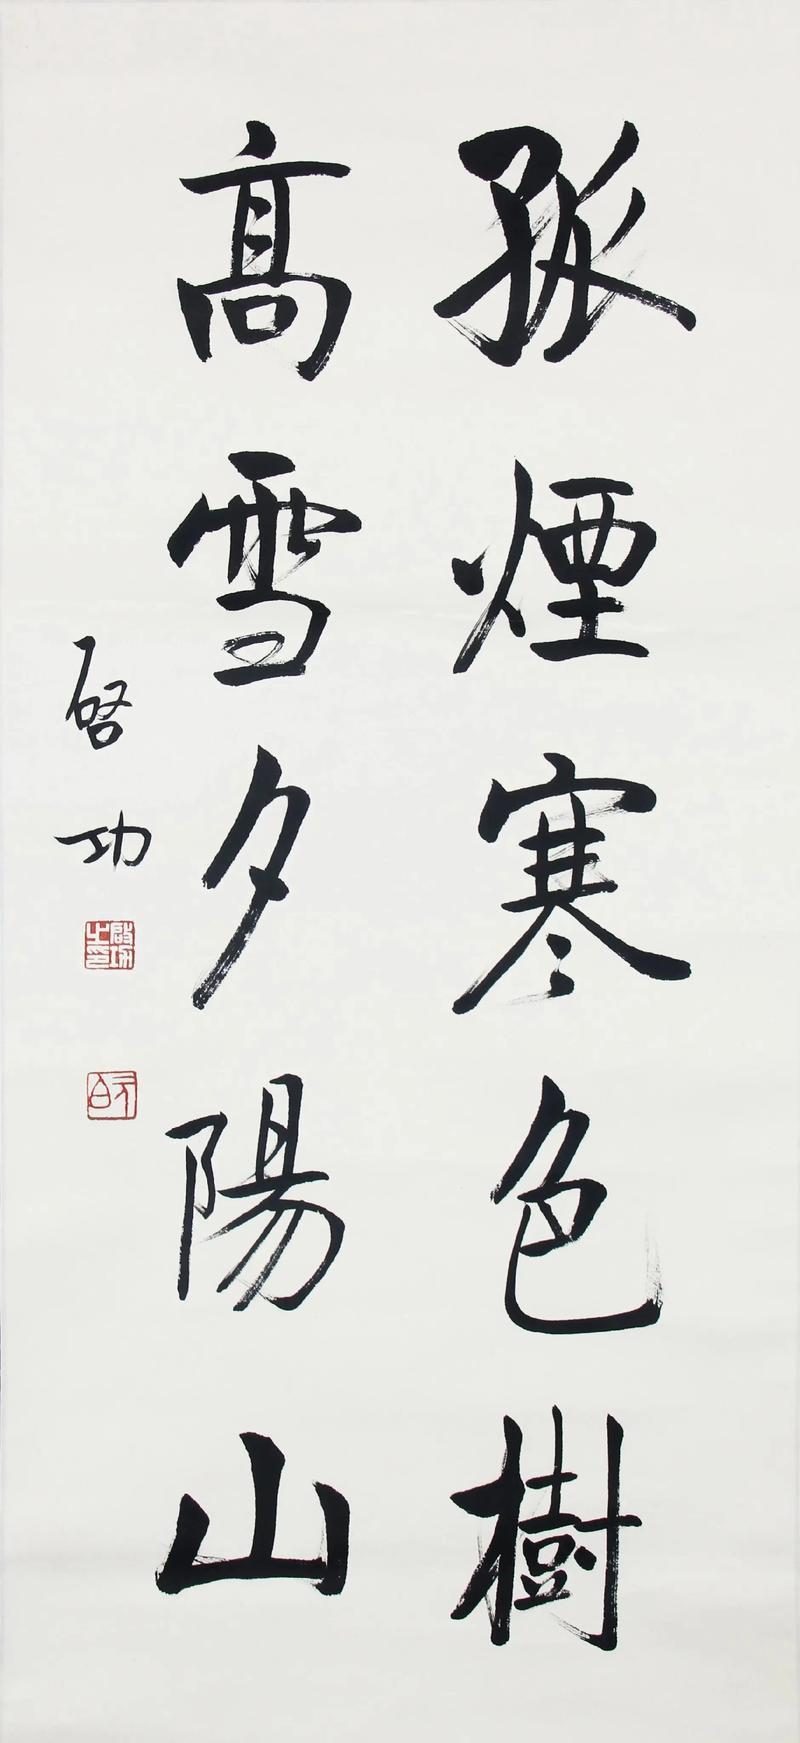 孤煙寒色樹
高雪夕陽山
啓功
啟功之印
元白